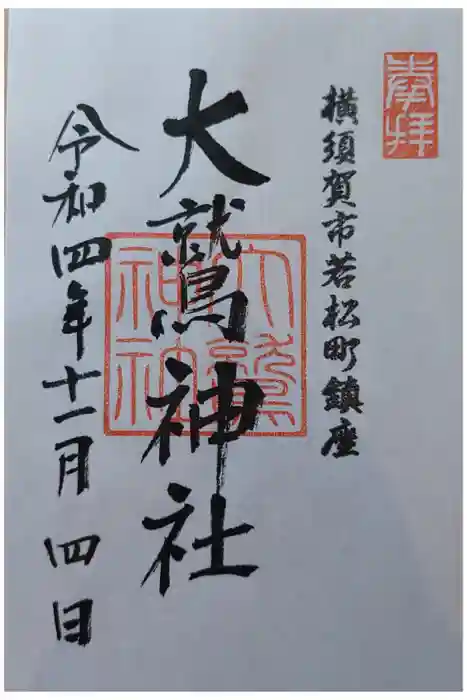 奉拝
横須賀市若松町鎮座
大鷲神社
大鷲
神社
令和四年十一月四日